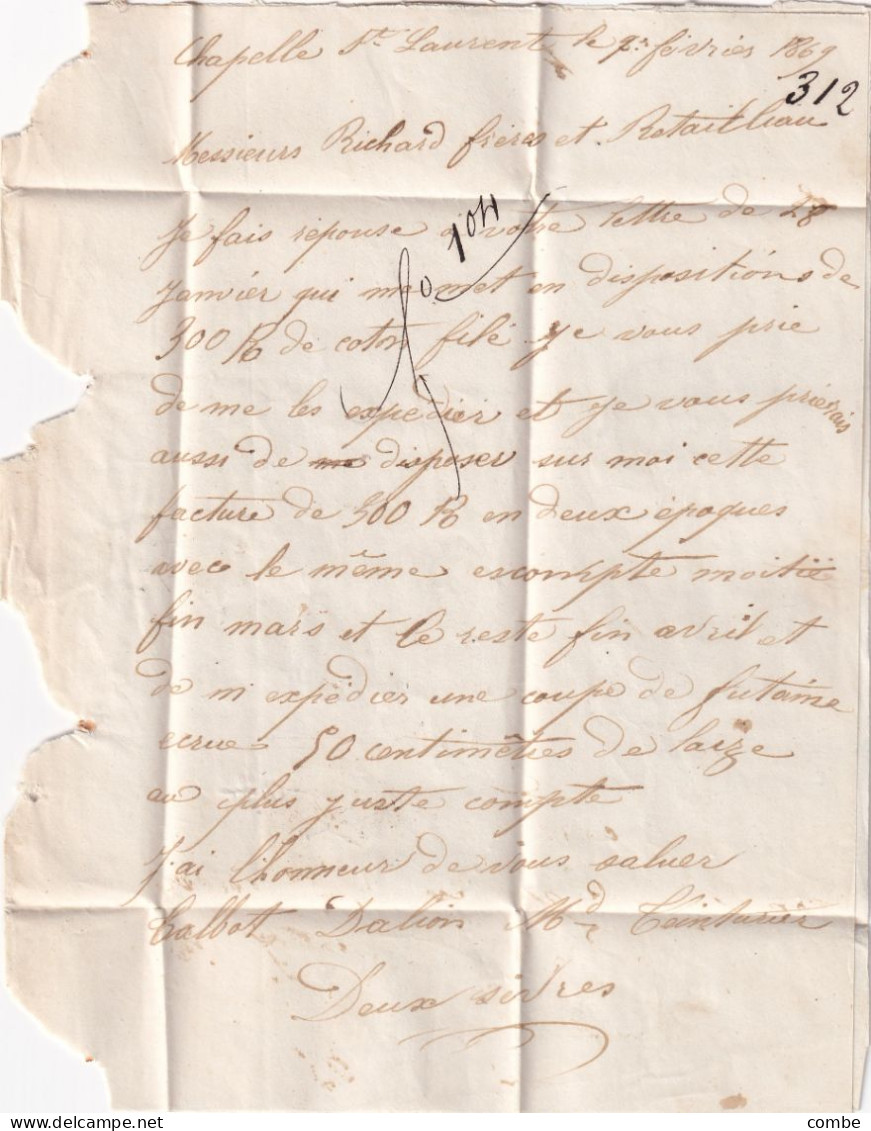 Chapelle St Laurent le 9 février 1869
312
Messieurs Richard frères et Retailleau
Je fais réponse a votre lettre de 28
Janvier qui me met en dispositions de
300 K de coton filé je vous prie
de me les expédier et je vous prierais
aussi de me disposer sur moi cette
facture de 300 K en deux époques
avec le même escompte moitié
fin mars et le reste fin avril et
de m expédier une coupe de futaine
ecrue 50 centimêtres de laize
au plus juste compte
J'ai l'honneur de vous saluer
Talbot Dalion Md Teinturier
Deux sèvres
delcampe.net
combe